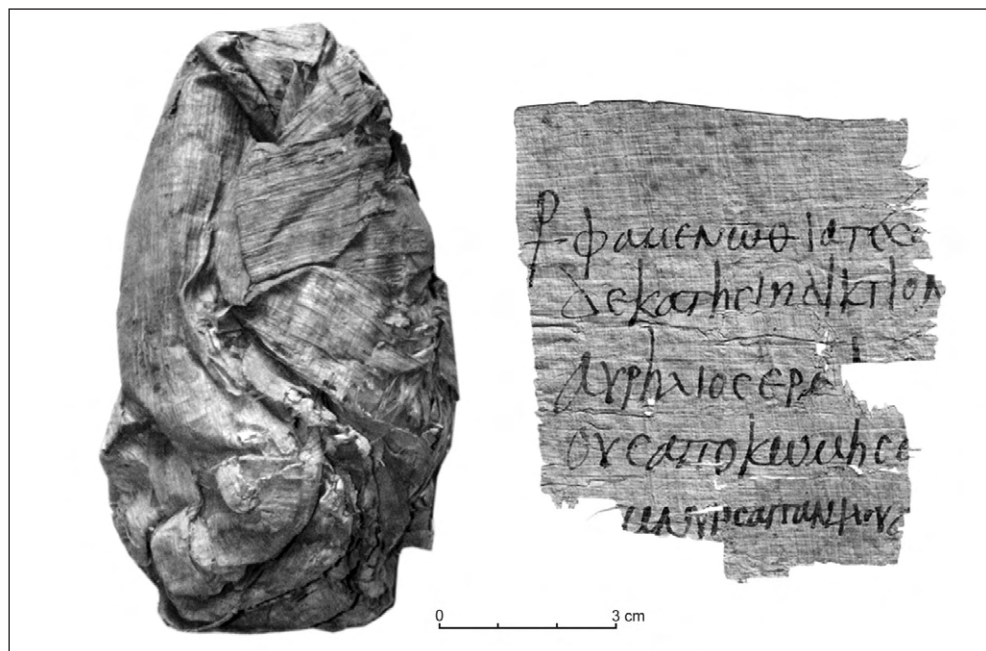 ⳨ φαμενωθ ια τεϲ
δεκατηϲ ινδικτιον
αυρηλιοϲ ερ
ουϲ απο κωμηϲ
απ αντινου
0 3 cm